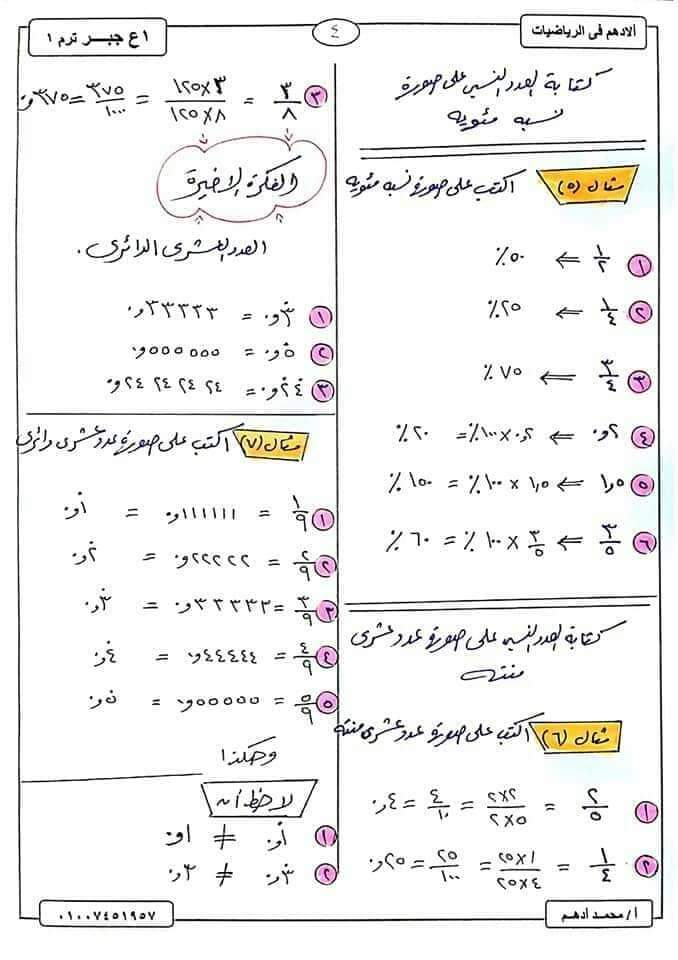 الادهم فى الرياضيات
٤
١ع جبر ترم ١
كتابة العدد النسبى على صورة
نسبه مئويه
مثال (٥) اكتب على صورة نسبه مئويه
١ ١/٢ ⇐ ٥٠٪
٢ ١/٤ ⇐ ٢٥٪
٣ ٣/٤ ⇐ ٧٥٪
٤ ٢و. ⇐ ٠,٢ × ١٠٠٪ = ٢٠٪
٥ ١,٥ ⇐ ١,٥ × ١٠٠٪ = ١٥٠٪
٦ ٣/٥ ⇐ ٣/٥ × ١٠٠٪ = ٦٠٪
كتابة العدد النسبى على صورة عدد عشرى
منته
مثال (٦) اكتب على صورة عدد عشرى منته
١ ٢/٥ = ٢×٢/٢×٥ = ٤/١٠ = ٤و.
٢ ١/٤ = ٢٥×١/٢٥×٤ = ٢٥/١٠٠ = ٢٥و.
٣ ٣/٨ = ١٢٥×٣/١٢٥×٨ = ٣٧٥/١٠٠٠ = ٣٧٥و.
الفكرة الاخيرة
العدد العشرى الدائرى.
١ ٣̇و. = ٣٣٣٣٣و.
٢ ٥̇و. = ٥٥٥٥٥٥و.
٣ ٢̇٤̇و. = ٢٤ ٢٤ ٢٤ ٢٤و.
مثال (٧) اكتب على صورة عدد عشرى دائرى
١ ١/٩ = ١١١١١١و. = ١̇و.
٢ ٢/٩ = ٢٢٢٢٢و. = ٢̇و.
٣ ٣/٩ = ٣٣٣٣٣و. = ٣̇و.
٤ ٤/٩ = ٤٤٤٤٤و. = ٤̇و.
٥ ٥/٩ = ٥٥٥٥٥و. = ٥̇و.
وهكذا
لاحظ أن
١ ١̇و. ≠ ١و.
٢ ٣̇و. ≠ ٣و.
أ/محمد أدهم
٠١٠٠٧٤٥١٩٥٧